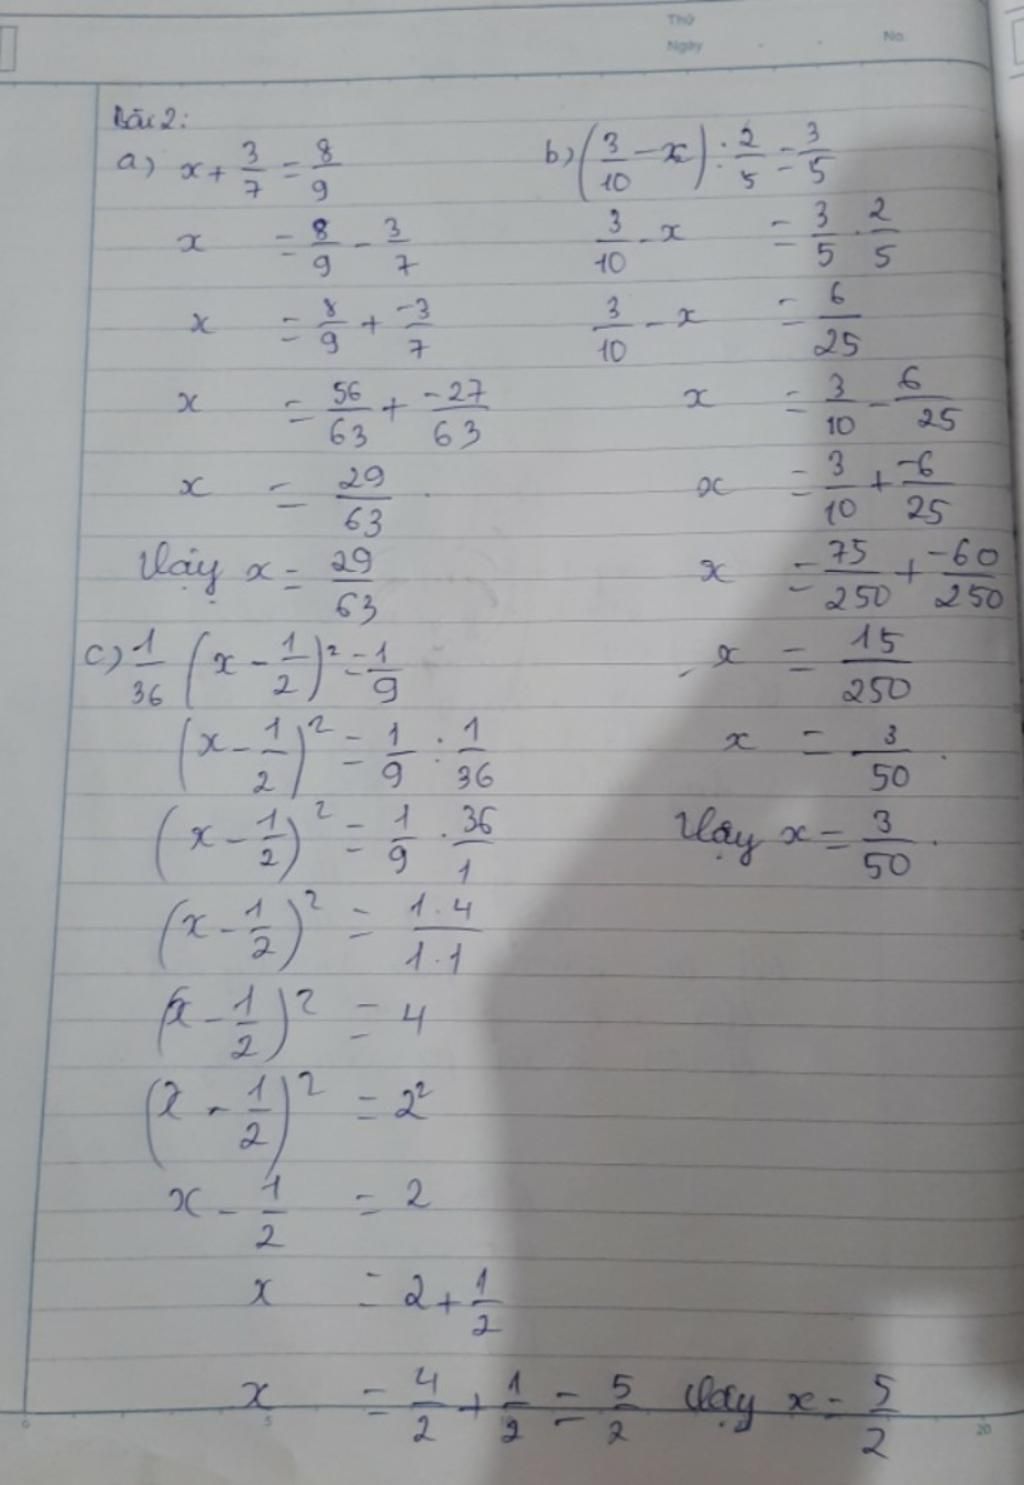 Thứ
Ngày . . No.
Bài 2:
a) x + 3/7 = 8/9
x = 8/9 - 3/7
x = 8/9 + -3/7
x = 56/63 + -27/63
x = 29/63.
Vậy x = 29/63
b) (3/10 - x) : 2/5 = 3/5
3/10 - x = 3/5 . 2/5
3/10 - x = 6/25
x = 3/10 - 6/25
x = 3/10 + -6/25
x = 75/250 + -60/250
x = 15/250
x = 3/50.
Vậy x = 3/50.
c) 1/36 (x - 1/2)² = 1/9
(x - 1/2)² = 1/9 : 1/36
(x - 1/2)² = 1/9 . 36/1
(x - 1/2)² = 1.4/1.1
(x - 1/2)² = 4
(x - 1/2)² = 2²
x - 1/2 = 2
x = 2 + 1/2
x = 4/2 + 1/2 = 5/2 Vậy x = 5/2
0 5 20